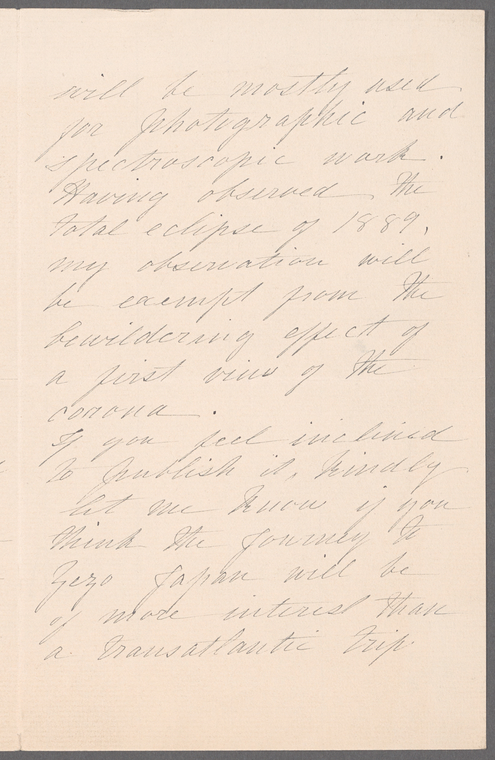 will be mostly used
for photographic and
spectroscopic work.
Having observed the
total eclipse of 1889,
my observation will
be exempt from the
bewildering effect of
a first view of the
corona.
If you feel inclined
to publish it, kindly
let me know if you
think the journey to
Yezo Japan will be
of more interest than
a transatlantic trip.